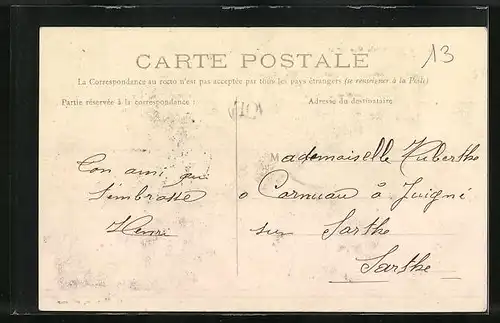 CARTE POSTALE
13
La Correspondance au recto n'est pas acceptée par tous les pays étrangers (se renseigner à la Poste)
Partie réservée à la correspondance :
Adresse du destinataire
Ton ami qui
t'embrasse
Henri
Mademoiselle Huberthe
Cornuau à Juigné
sur Sarthe
Sarthe